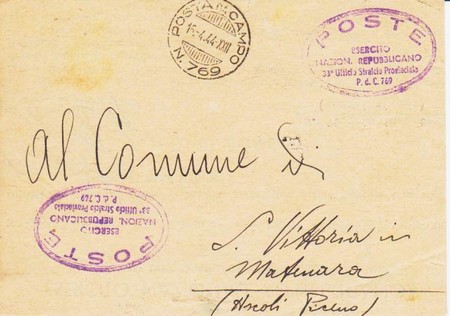 POSTA DA CAMPO
15.4.44.XXII
N. 769
POSTE
ESERCITO
NAZION. REPUBBLICANO
33° Ufficio Stralcio Provinciale
P. d. C. 769
Al Comune di
S. Vittoria in
Matenara
(Ascoli Piceno)
POSTE
ESERCITO
NAZION. REPUBBLICANO
33° Ufficio Stralcio Provinciale
P. d. C. 769